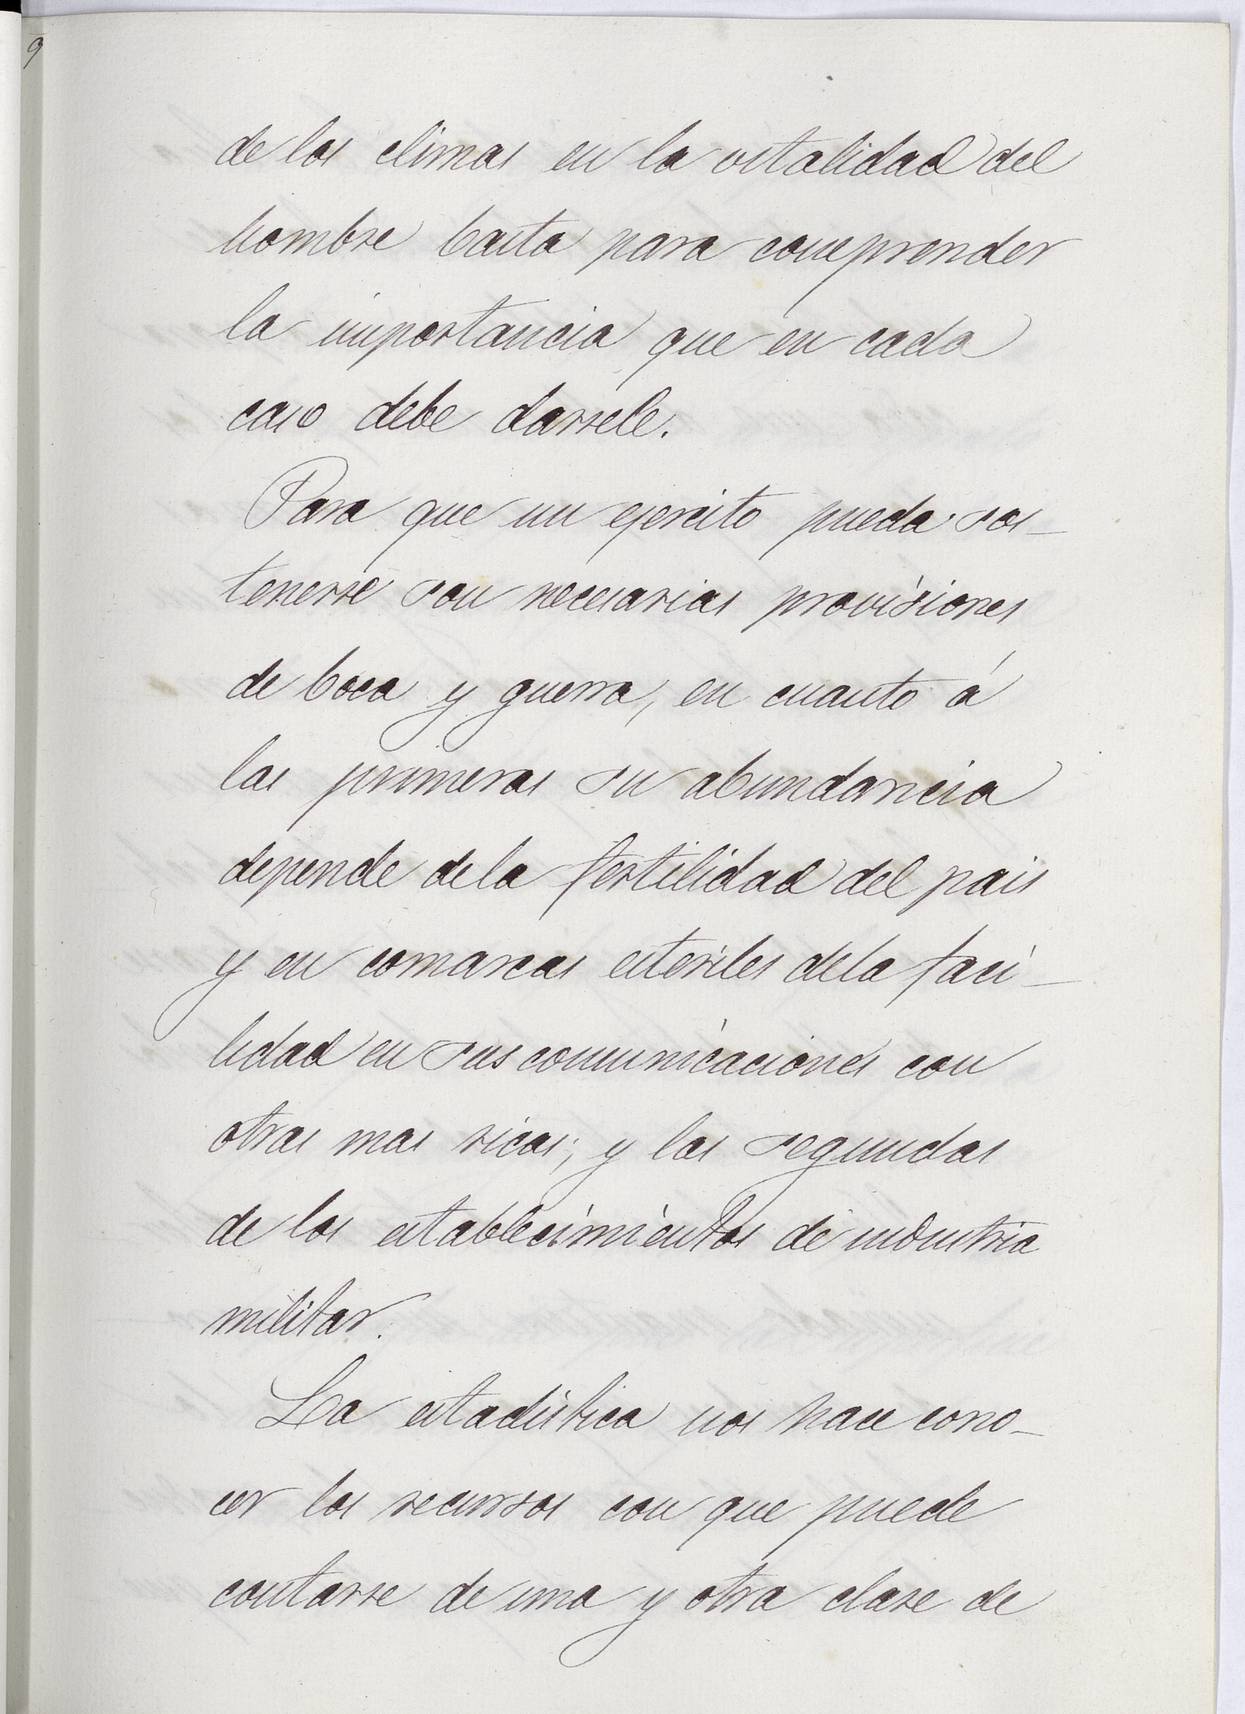 9
de los climas en la vitalidad del
hombre basta para comprender
la importancia que en cada
caso debe darsele.
Para que un ejercito pueda sos-
tenerse son necesarias provisiones
de boca y guerra, en cuanto á
las primeras su abundancia
depende de la fertilidad del pais
y en comarcas esteriles de la faci-
lidad en sus comunicaciones con
otras mas ricas; y las segundas
de los establecimientos de industria
militar.
La estadistica nos hace cono-
cer los recursos con que puede
contarse de una y otra clase de